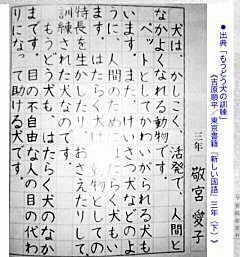 ●出典「もうどう犬の訓練」
(吉原順平/東京書籍『新しい国語』三年(下))
三年　敬宮　愛子
犬は、かしこく、活発で、人間と
なかよくなれる動物です。
ペットとしてかわいがられる犬も
います。また、けいさつ犬などのよ
うに、人間のためにはたらく犬もい
ます。はたらく犬は、動物としての
特長を生かしたり、おさえたりして、
訓練された犬なのです。
もうどう犬も、はたらく犬のなか
まです。目の不自由な人の目の代わ
りになって助ける犬です。